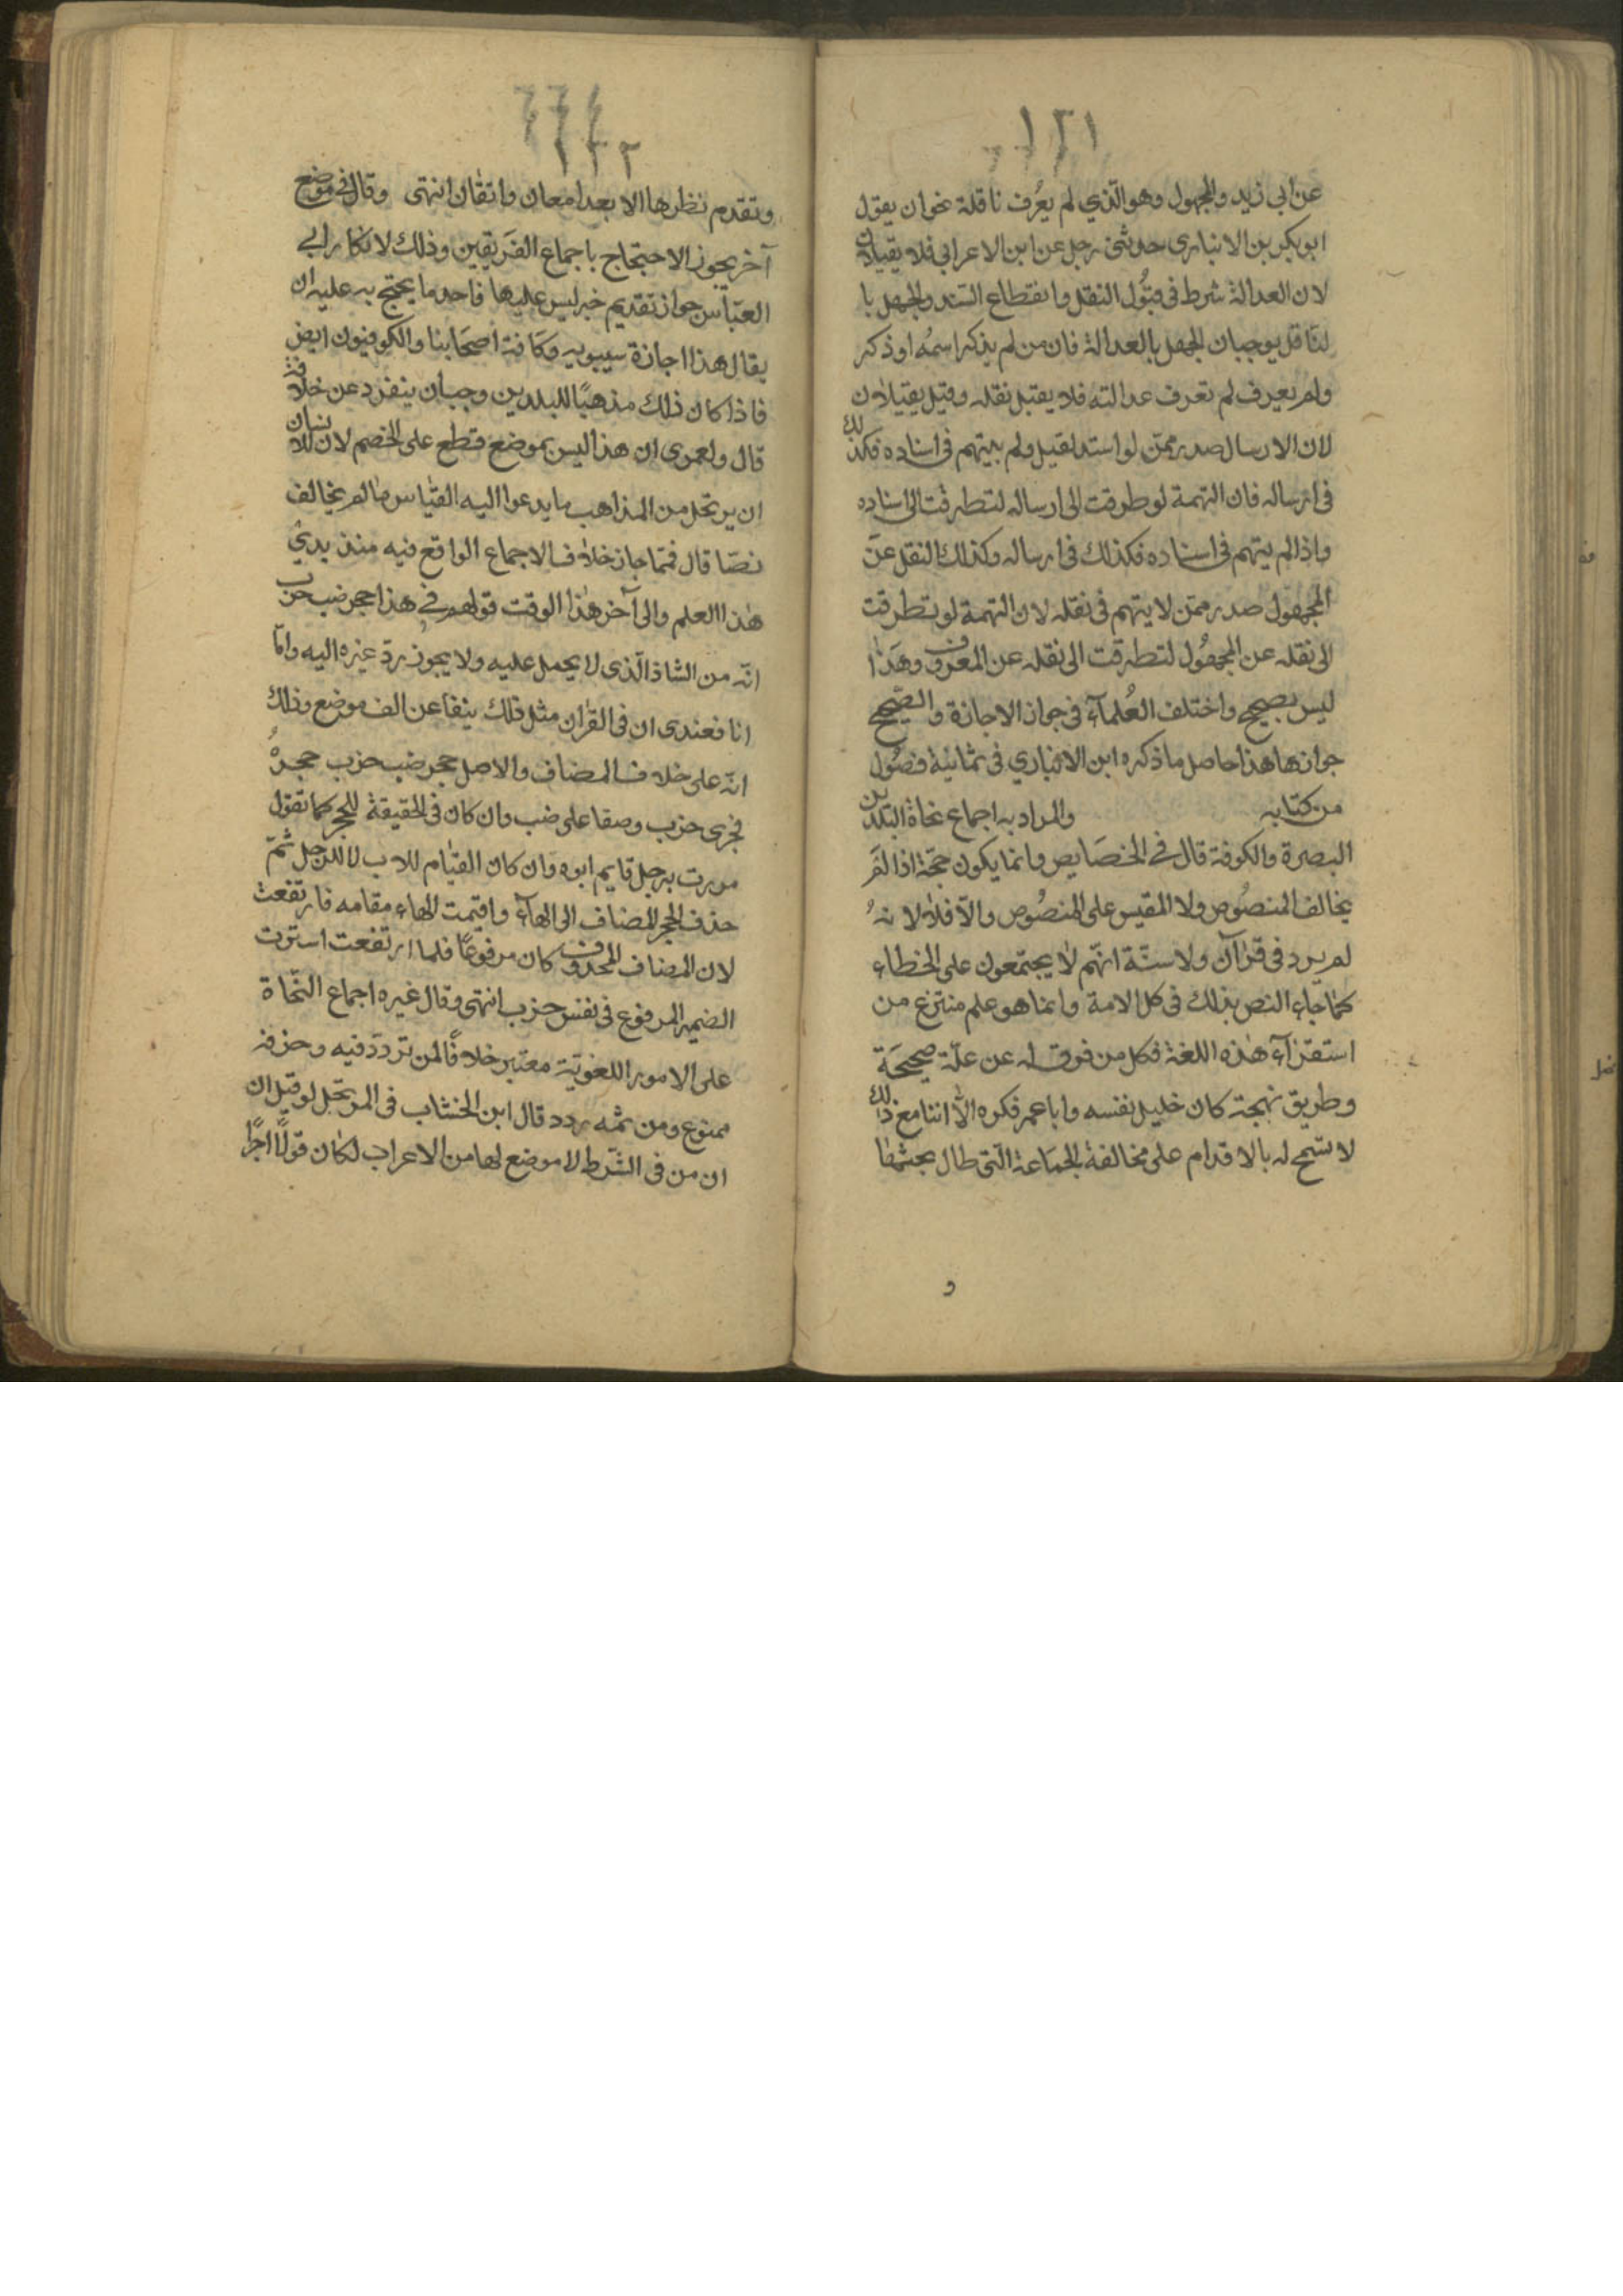 ١٢١
عن ابي زيد والمجهول وهو الّذي لم يعُرف ناقلة نحو ان يقول
ابو بكر بن الانبارى حدثنى رجل عن ابن الاعرابي فلا يقبلان
لان العدالة شرط في قبُول النقل وانقطاع السّند والجهل با
لنّاقل يوجبان الجهل بالعدالة فان من لم يذكر اسمُه او ذكر
ولم يعرف لم تعرف عدالته فلا يقبل نقله وقيل يقبلان
لان الارسال صدر ممّن لو اسند لقبل ولم يتهم في اسناده فكذلك
في ارساله فان التهمة لو طرقت الى ارساله لتطرقت الى اسناده
واذا لم يتهم في اسناده فكذلك في ارساله وكذلك النقل عن
المجهول صدر ممّن لا يتهم في نقله لان التهمة لو تطرقت
الى نقله عن المجهُول لتطرقت الى نقله عن المعروف وهَذا
ليس بصحيح واختلف العُلمآء في جواز الاجازة والصّحيح
جوازها هذا حاصل ما ذكره ابن الانباري في ثمانية فصُول
من كتابه والمراد به اجماع نحاة البلدين
البصرة والكوفة قال في الخصَايص وانما يكون حجّة اذا لم
يخالف المنصُوص ولا المقيس على المنصُوص والّا فلا لانهُ
لم يرد في قرآن ولا سنّة انّهم لا يجتمعون على الخطاء
كما جاء النص بذلك في كل الامة وانما هو علم منتزع من
استقرآء هذه اللغة فكل من فرق له عن علّة صحيحَة
وطريق نهجة كان خليل نفسه وابا عمر فكره الّا اننا مع ذلك
لا نسّمح له بالاقدام على مخالفة الجمَاعة الّتى طال بحثها
و
١٢٢
وتقدم نظرها الا بعد امعان واتقان انتهى وقال في موضع
آخر يجوز الاحتجاج باجماع الفَريقين وذلك لانكار ابي
العبّاس جواز تقديم خبر ليس عليها فاحد ما يحتج به عليه ان
يقال هذا اجازة سيبويه وكافة اصحَابنا والكوفيون ايض
فاذا كان ذلك مذهبًا للبلدين وجب أن ينفرد عن خلافه
قال ولعمرى ان هذا ليس بموضع قطع على الخصم لان للانسان
ان يرتحل من المذاهب ما يدعوا اليه القياس ما لم يخالف
نصّا قال فمّما جاز خلاف الاجماع الواقع فيه منذ بدئ
هذا العلم والى آخر هذا الوقت قولهم في هذا حجر ضب خرب
انّه من الشاذ الّذى لا يحمل عليه ولا يجوز ردّ غيره اليه وامّا
انا فعندى ان في القران مثل ذلك ينفا عن الف موضع وذلك
انّه على خلاف المضاف والاصل حجر ضب خرب حجرهُ
فجرى خرب وصفا على ضب وان كان في الحقيقة للحجر كما تقول
مررت برجل قايم ابوه وان كان القيام للاب لا للرجل ثمّ
حذف الحجر المضاف الى الهآء واقيمت الهاء مقامه فارتفعت
لان المضاف المحذوف كان مرفوعًا فلما ارتفعت استترت
الضمير المرفوع في نفس خرب انتهى وقال غيره اجماع النّحاة
على الامور اللغويّة معتبر خلافًا لمن تردّد فيه وخرقه
ممنوع ومن ثمه ردد قال ابن الخشّاب في المرتجل لو قيل ان
ان من في الشّرط لا موضع لها من الاعراب لكان قولًا